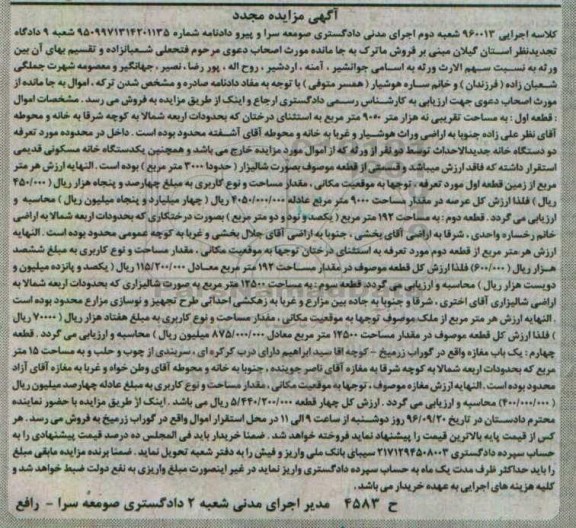 آگهی مزایده مجدد
کلاسه اجرایی ۹۶۰۰۱۳ شعبه دوم اجرای مدنی دادگستری صومعه سرا و پیرو دادنامه شماره ۹۵۰۹۹۷۱۳۱۴۲۰۱۱۳۵ شعبه ۹ دادگاه
تجدیدنظر استان گیلان مبنی بر فروش ماترک به جا مانده مورث اصحاب دعوی مرحوم فتحعلی شعبانزاده و تقسیم بهای آن بین
ورثه به نسبت سهم الارث ورثه به اسامی جوانشیر، آمنه، اردشیر، روح اله، پور رضا، نصیر، جهانگیر و معصومه شهرت جملگی
شعبان زاده (فرزندان) و خانم ساره هوشیار (همسر متوفی) با توجه به مفاد دادنامه صادره و مشخص شدن ترکه، اموال به جا مانده از
مورث اصحاب دعوی جهت ارزیابی به کارشناس رسمی دادگستری ارجاع و اینک از طریق مزایده به فروش می رسد. مشخصات اموال
: قطعه اول: به مساحت تقریبی نه هزار متر ۹۰۰۰ متر مربع به استثنای درختان که بحدودات اربعه شمالا به کوچه شرقا به خانه و محوطه
آقای نظر علی زاده جنوبا به اراضی وراث هوشیار و غربا به خانه و محوطه آقای آشفته محدود بوده است. داخل در محدوده مورد تعرفه
دو دستگاه خانه جدیدالاحداث توسط دو نفر از ورثه که از اموال مورد مزایده خارج می باشد و همچنین یکدستگاه خانه مسکونی قدیمی
استقرار داشته که فاقد ارزش میباشد و قسمتی از قطعه موصوف بصورت شالیزار (حدودا ۳۰۰۰ متر مربع) بوده است. النهایه ارزش هر متر
مربع از زمین قطعه اول مورد تعرفه، توجها به موقعیت مکانی، مقدار مساحت و نوع کاربری به مبلغ چهارصد و پنجاه هزار ریال (۴۵۰/۰۰۰
ریال) فلذا ارزش کل عرصه در مقدار مساحت ۹۰۰۰ متر مربع عادله ۴۰۵۰/۰۰۰/۰۰۰ ریال (چهار میلیارد و پنجاه میلیون ریال) محاسبه و
ارزیابی می گردد. قطعه دوم: به مساحت ۱۹۲ متر مربع (یکصد و نود و دو متر مربع) بصورت درختکاری که بحدودات اربعه شمالا به اراضی
خانم رخساره واحدی، شرقا به اراضی آقای بخشی، جنوبا به اراضی آقای جلال بخشی و غربا به کوچه عمومی محدود بوده است. النهایه
ارزش هر متر مربع از قطعه دوم مورد تعرفه به استثنای درختان توجها به موقعیت مکانی، مقدار مساحت و نوع کاربری به مبلغ ششصد
هزار ریال (۶۰۰/۰۰۰) فلذا ارزش کل قطعه موصوف در مقدار مساحت ۱۹۲ متر مربع معادل ۱۱۵/۲۰۰/۰۰۰ ریال (یکصد و پانزده میلیون و
دویست هزار ریال) محاسبه و ارزیابی می گردد. قطعه سوم: به مساحت ۱۲۵۰۰ متر مربع به صورت شالیزاری که بحدودات اربعه شمالا به
اراضی شالیزاری آقای اختری، شرقا و جنوبا به جاده بین مزارع و غربا به زهکشی احداثی طرح تجهیز و نوسازی مزارع محدود بوده است
. النهایه ارزش هر متر مربع از ملک موصوف توجها به موقعیت مکانی، مقدار مساحت و نوع کاربری به مبلغ هفتاد هزار ریال (۷۰۰۰۰ ریال
) فلذا ارزش کل قطعه موصوف در مقدار مساحت ۱۲۵۰۰ متر مربع معادل ۸۷۵/۰۰۰/۰۰۰ میلیون ریال) محاسبه و ارزیابی می گردد. قطعه
چهارم: یک باب مغازه واقع در گوراب زرمیخ - کوچه آقا سید ابراهیم دارای درب کرکره ای، سربندی از چوب و حلب و به مساحت ۱۵ متر
مربع که بحدودات اربعه شمالا به کوچه شرقا به مغازه آقای ناصر جوینده، جنوبا به خانه و محوطه آقای وطن خواه و غربا به مغازه آقای آزاد
محدود بوده است. النهایه ارزش مغازه موصوف، توجها به موقعیت مکانی، مقدار مساحت و نوع کاربری به مبلغ عادله چهارصد میلیون ریال
(۴۰۰/۰۰۰/۰۰۰) محاسبه و ارزیابی می گردد. ارزش کل چهار قطعه ۵/۴۴۰/۲۰۰/۰۰۰ ریال می باشد. اینک از طریق مزایده با حضور نماینده
محترم دادستان در تاریخ ۹۶/۰۹/۲۰ روز دوشنبه از ساعت ۹ الی ۱۱ در محل استقرار اموال واقع در گوراب زرمیخ به فروش می رسد. هر
کس از قیمت پایه بالاترین قیمت را پیشنهاد نماید فروخته خواهد شد. ضمنا خریدار باید فی المجلس ده درصد قیمت پیشنهادی را به
حساب سپرده دادگستری ۲۱۷۱۲۹۴۵۰۸۰۰۳ سیبای بانک ملی واریز و فیش را به دفتر شعبه تحویل نماید. ضمنا برنده مزایده مابقی مبلغ
را باید حداکثر ظرف مدت یک ماه به حساب سپرده دادگستری واریز نماید در غیر اینصورت مبلغ واریزی به نفع دولت ضبط خواهد شد و
کلیه هزینه های اجرایی به عهده خریدار می باشد.
ح ۴۵۸۳ مدیر اجرای مدنی شعبه ۲ دادگستری صومعه سرا - رافع